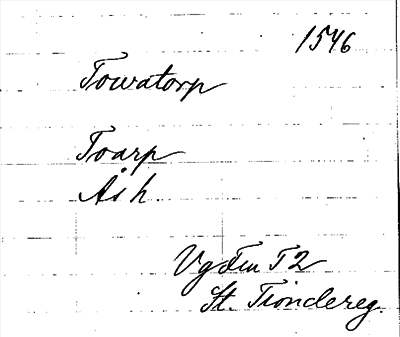 1546
Towatorp
Toarp
Ås h
Vg Tiu T2
St. Tiondereg.